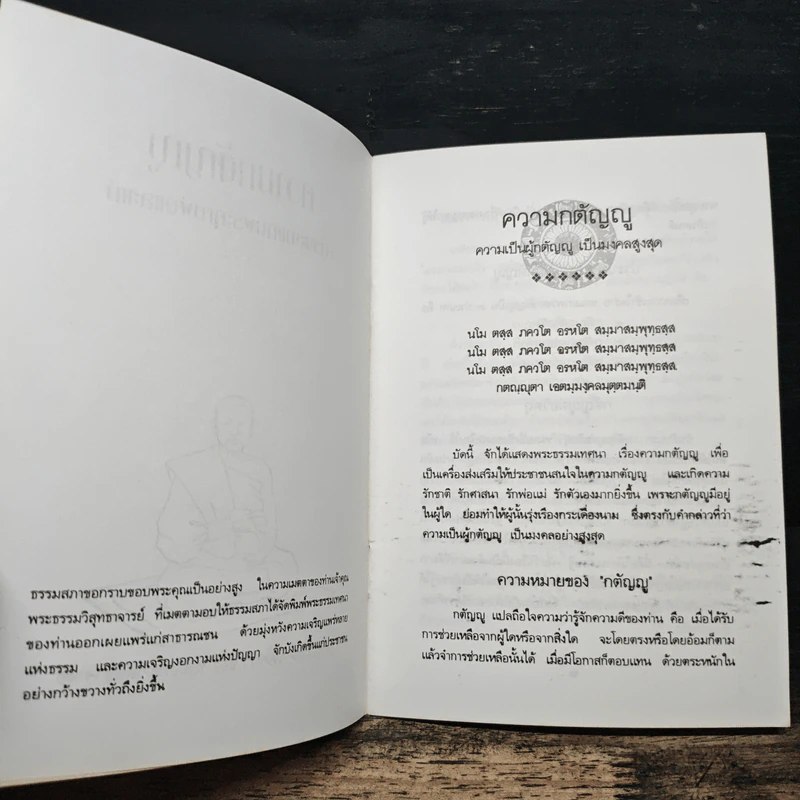 ธรรมสภาขอกราบขอบพระคุณเป็นอย่างสูง ในความเมตตาของท่านเจ้าคุณ
พระธรรมวิสุทธาจารย์ ที่เมตตามอบให้ธรรมสภาได้จัดพิมพ์พระธรรมเทศนา
ของท่านออกเผยแพร่แก่สาธารณชน ด้วยมุ่งหวังความเจริญแพร่หลาย
แห่งธรรม และความเจริญงอกงามแห่งปัญญา จักบังเกิดขึ้นแก่ประชาชน
อย่างกว้างขวางทั่วถึงยิ่งขึ้น
ความกตัญญู
ความเป็นผู้กตัญญู เป็นมงคลสูงสุด
นโม ตสฺส ภควโต อรหโต สมฺมาสมฺพุทฺธสฺส
นโม ตสฺส ภควโต อรหโต สมฺมาสมฺพุทฺธสฺส
นโม ตสฺส ภควโต อรหโต สมฺมาสมฺพุทฺธสฺส.
กตญฺญุตา เอตมฺมงฺคลมุตฺตมนฺติ
บัดนี้ จักได้แสดงพระธรรมเทศนา เรื่องความกตัญญู เพื่อ
เป็นเครื่องส่งเสริมให้ประชาชนสนใจในความกตัญญู และเกิดความ
รักชาติ รักศาสนา รักพ่อแม่ รักตัวเองมากยิ่งขึ้น เพราะกตัญญูมีอยู่
ในผู้ใด ย่อมทำให้ผู้นั้นรุ่งเรืองกระเดื่องนาม ซึ่งตรงกับคำกล่าวที่ว่า
ความเป็นผู้กตัญญู เป็นมงคลอย่างสูงสุด
ความหมายของ "กตัญญู"
กตัญญู แปลถือใจความว่ารู้จักความดีของท่าน คือ เมื่อได้รับ
การช่วยเหลือจากผู้ใดหรือจากสิ่งใด จะโดยตรงหรือโดยอ้อมก็ตาม
แล้วจำการช่วยเหลือนั้นได้ เมื่อมีโอกาสก็ตอบแทน ด้วยตระหนักใน